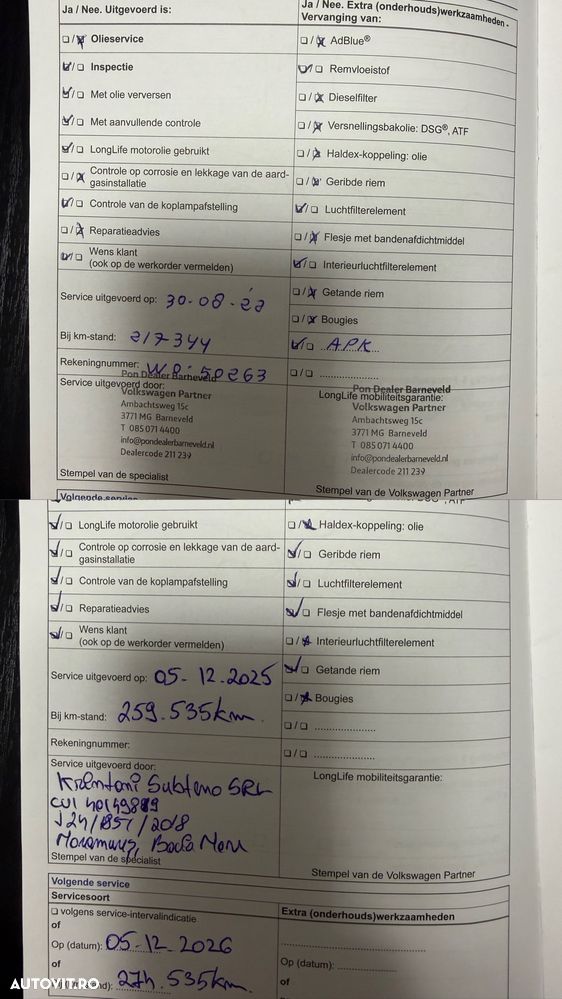 Ja / Nee. Uitgevoerd is:
Ja / Nee. Extra (onderhouds)werkzaamheden -
Vervanging van:
Olieservice
AdBlue®
Inspectie
Remvloeistof
Met olie verversen
Dieselfilter
Met aanvullende controle
Versnellingsbakolie: DSG®, ATF
LongLife motorolie gebruikt
Haldex-koppeling: olie
Controle op corrosie en lekkage van de aard-
gasinstallatie
Geribde riem
Controle van de koplampafstelling
Luchtfilterelement
Reparatieadvies
Flesje met bandenafdichtmiddel
Wens klant
(ook op de werkorder vermelden)
Interieurluchtfilterelement
Getande riem
Service uitgevoerd op: 30-08-22
Bougies
Bij km-stand: 217344
APK
Rekeningnummer: WO-50263
Service uitgevoerd door:
Pon Dealer Barneveld
Volkswagen Partner
Ambachtsweg 15c
3771 MG Barneveld
T 085 071 4400
info@pondealerbarneveld.nl
Dealercode 211 239
Stempel van de specialist
LongLife mobiliteitsgarantie:
Pon Dealer Barneveld
Volkswagen Partner
Ambachtsweg 15c
3771 MG Barneveld
T 085 071 4400
info@pondealerbarneveld.nl
Dealercode 211 239
Stempel van de Volkswagen Partner
Volgende service
LongLife motorolie gebruikt
Haldex-koppeling: olie
Controle op corrosie en lekkage van de aard-
gasinstallatie
Geribde riem
Controle van de koplampafstelling
Luchtfilterelement
Reparatieadvies
Flesje met bandenafdichtmiddel
Wens klant
(ook op de werkorder vermelden)
Interieurluchtfilterelement
Service uitgevoerd op: 05-12.2025
Getande riem
Bougies
Bij km-stand: 259.535km.
Rekeningnummer:
Service uitgevoerd door:
SRL
CUI
J24/1857/2018
Stempel van de specialist
LongLife mobiliteitsgarantie:
Stempel van de Volkswagen Partner
Volgende service
Servicesoort
Extra (onderhouds)werkzaamheden
volgens service-intervalindicatie
of
Op (datum): 05-12.2026
Op (datum):
of
274.535km.
of
AUTOVIT.RO